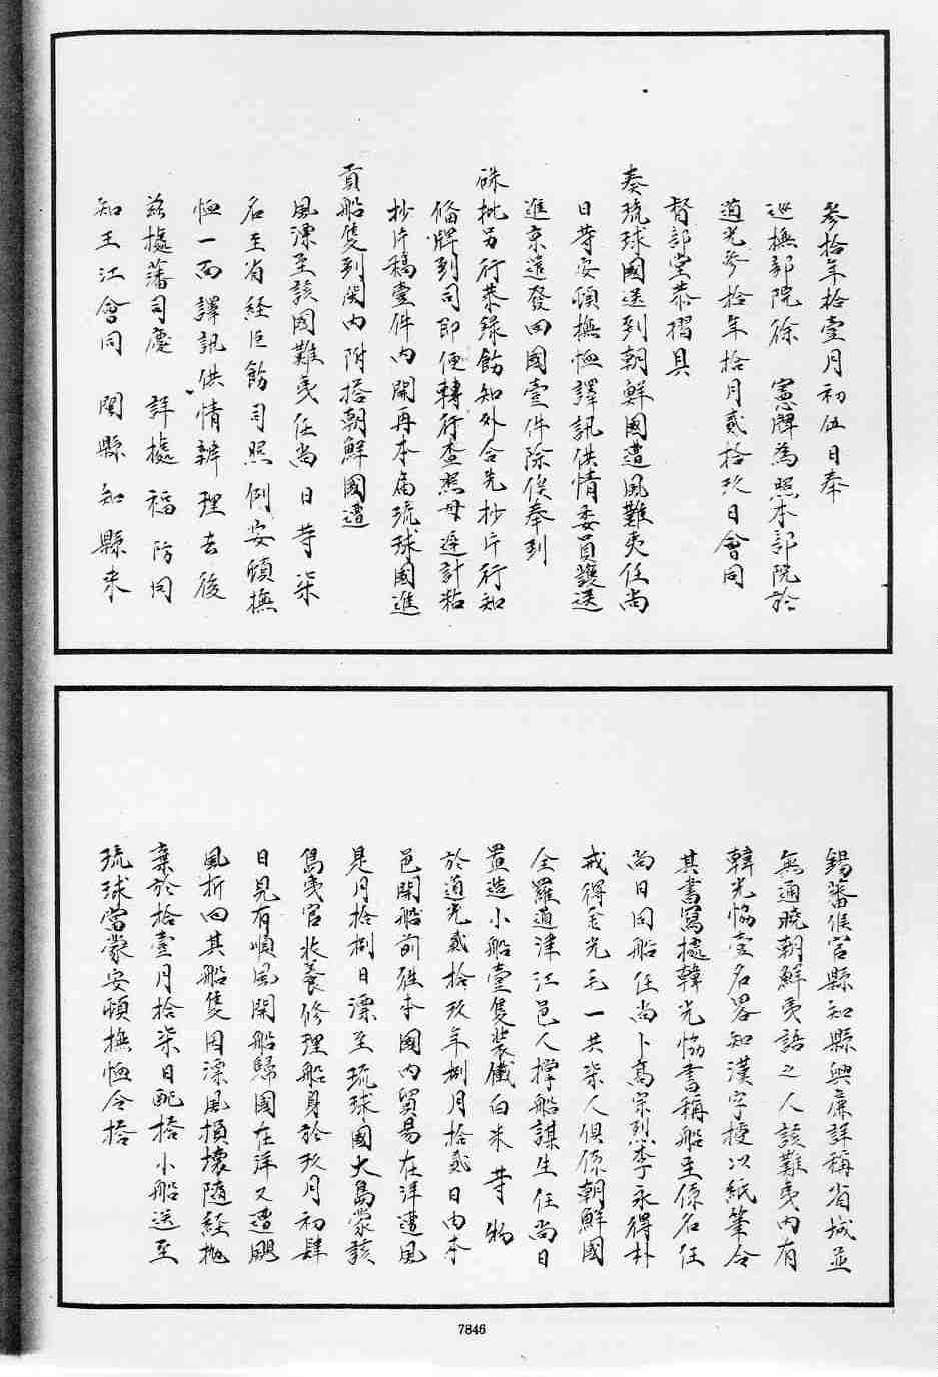 叁拾年拾壹月初伍日奉
巡撫部院徐　憲牌為照本部院於
道光叁拾年拾月貳拾玖日會同
督部堂恭摺具
奏琉球國送到朝鮮國遭風難夷任尚
日等安頓撫恤譯訊供情委員護送
進京遣發回國壹件除俟奉到
硃批另行恭錄飭知外合先抄片行知
備牌到司即便轉行查照毋遲計粘
抄片稿壹件內開再本屆琉球國進
貢船隻到閩內附搭朝鮮國遭
風漂至該國難夷任尚日等柒
名至省経臣飭司照例安頓撫
恤一面譯訊供情辦理去後
茲據藩司慶　詳據福防同
知王江會同　閩縣知縣來
錫蕃侯官縣知縣興廉詳稱省城並
無通曉朝鮮夷語之人該難夷內有
韓光恊壹名畧知漢字授以紙筆令
其書寫據韓光恊書稱船主係名任
尚日同船任尚卜高宗烈李永得朴
戒得金光毛一共柒人俱係朝鮮國
全羅道津江邑人撑船謀生任尚日
置造小船壹隻裝儎白米等物
於道光貳拾玖年捌月拾貳日由本
邑開船前徃本國內貿易在洋遭風
是月拾捌日漂至琉球國大島蒙該
島夷官收養修理船身於玖月初肆
日見有順風開船歸國在洋又遭颶
風折回其船隻因漂風損壞隨経抛
棄於拾壹月拾柒日配搭小船送至
琉球當蒙安頓撫恤令搭
7846